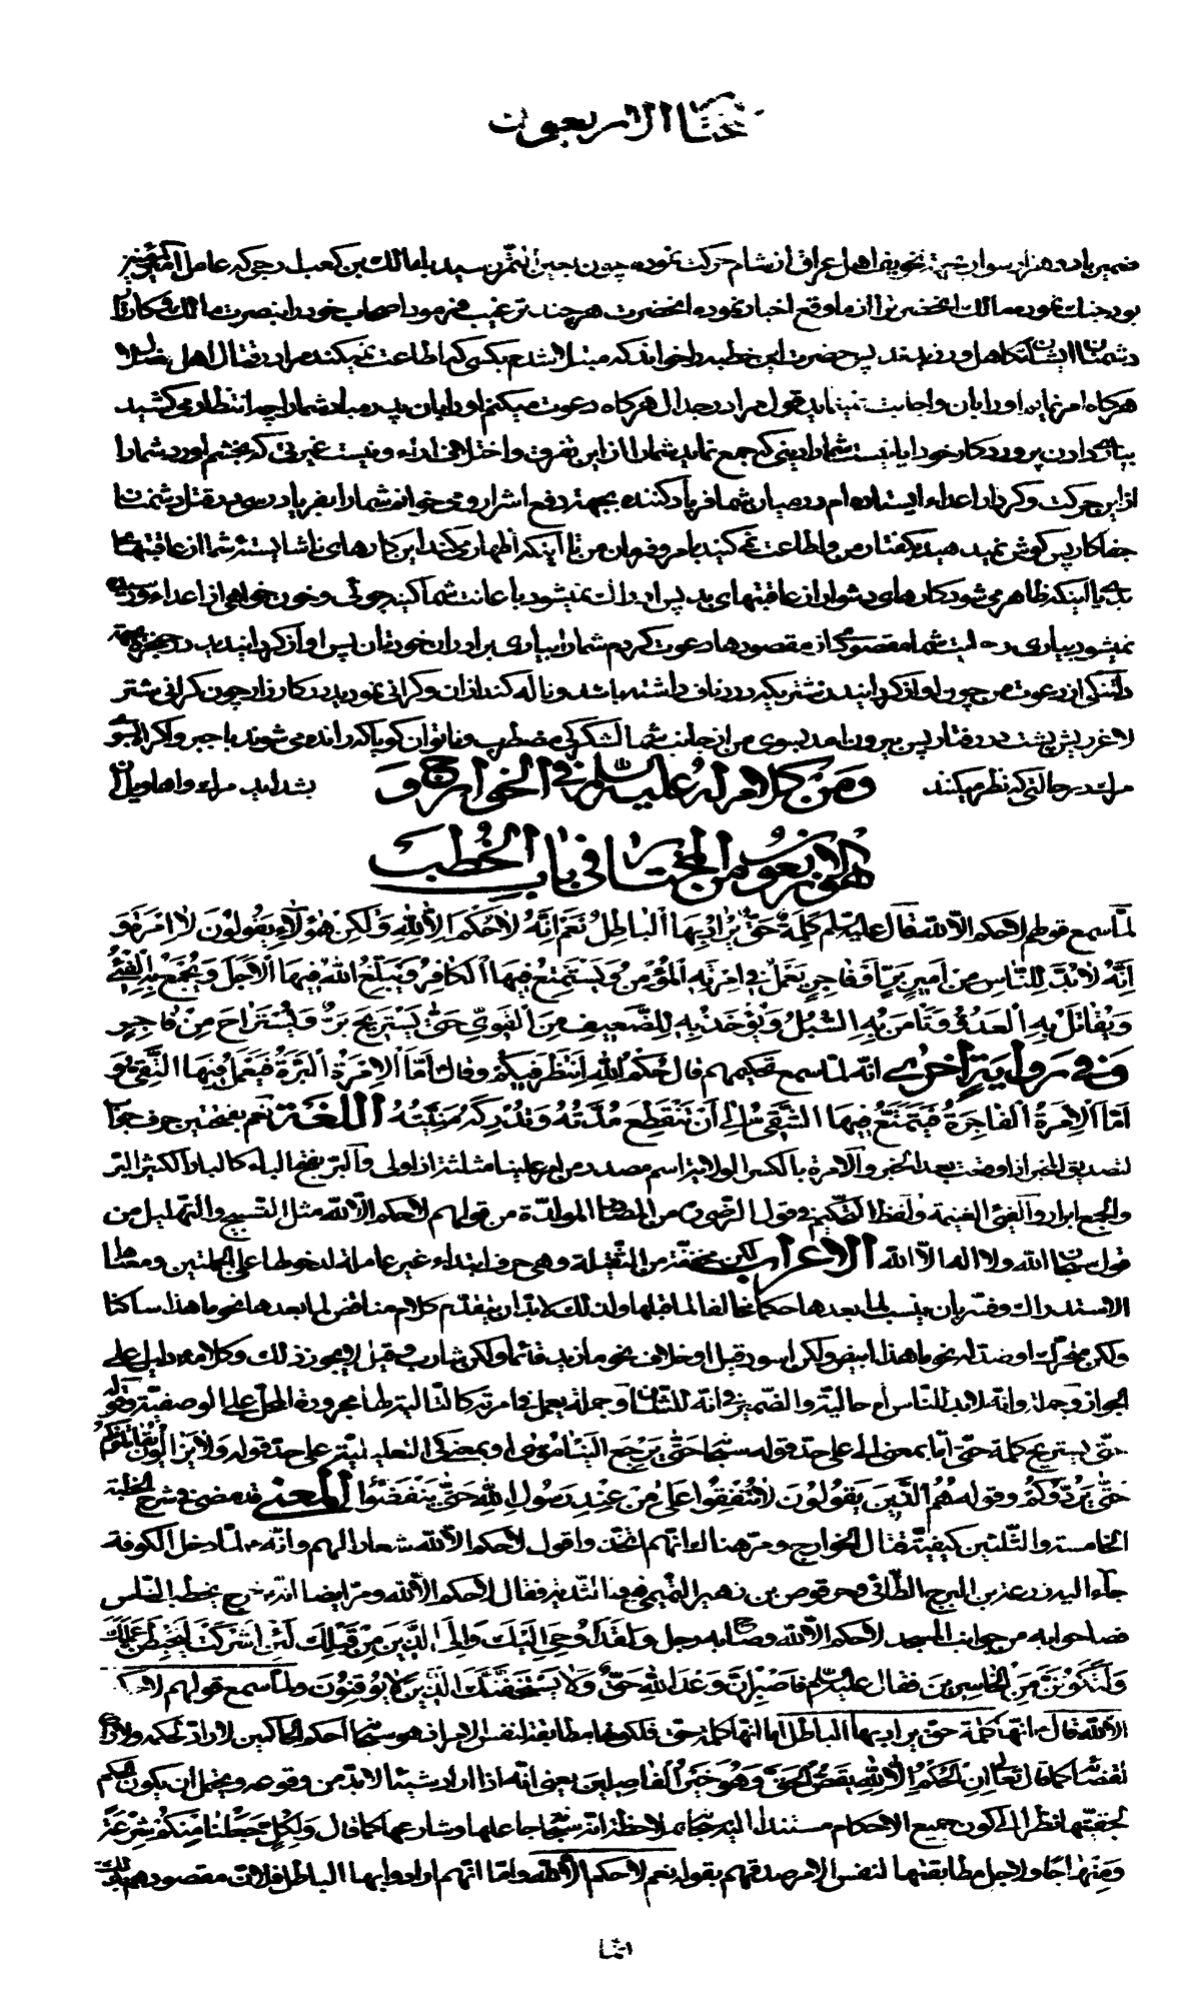 خ ۴۰ المختار الاربعون
ضمیر با دو هزار سوار بجهة تخویف اهل عراق از شام حرکت نموده چون بعین التمر رسید با مالک بن کعب ارحبی که عامل امیر المؤمنین
بود جنگ نمود مالک انحضرت را از ما وقع اخبار نموده انحضرت هر چند ترغیب فرمود اصحاب خود را بنصرت مالک و کارزار
دشمنان ایشان تکاهل ورزیدند پس حضرت این خطبه را خواند که مبتلا شدم بکسی که اطاعت نمیکند مرا در قتال اهل ضلال
هرگاه امر نمایم او را بان و اجابت نمینماید قول مرا در جدال هرگاه دعوت میکنم او را بان پدر مباد شما را چه انتظار می کشید
بیاری دادن پروردگار خود ایا نیست شما را دینی که جمع نماید شما را از این تفرق و اختلاف اراء و نیست غیرتی که بخشم اورد شما را
از این حرکت و کردار اعداء ایستاده ام در میان شما فریاد کننده بجهة دفع اشرار و می خوانم شما را بفریاد رسی در قتل دشمنان
جفاکار پس گوش نمیدهید بگفتار من و اطاعت نمی کنید بامر و فرمان من تا اینکه اظهار می کند این کارهای ناشایسته شما از عاقبتهای
بد یا اینکه ظاهر می شود کارهای دشوار از عاقبتهای بد پس ادراک نمیشود با عانت شما کینه جوئی و خون خواهی از اعداء و رسیده
نمیشود بیاری شما مقصودی از مقصودها دعوت کردم شما را بیاری برادران خودتان پس اواز گردانیدید در حنجره بجهة
دلتنگی از دعوت من چون اواز گردانیدن شتریکه درد ناف داشته باشد و ناله کند از ان و گرانی نمودید در کارزار چون گرانی شتر
لاغر ریش پشت در رفتار پس بیرون امد بسوی من از جانب شما لشگرکی مضطرب و ناتوان گویا که رانده می شوند با جبر و اکراه بسوی
مرگ در حالتی که نظر میکنند بشداید مرگ و اهاویل ان
وَمِنْ كَلامٍ لَهُ عَلَيْهِ السَّلام فِى الْخَوارِجِ وَ
هُوَ الْاَرْبَعُونَ مِنَ الْمُخْتارِ فى بابِ الْخُطَبِ
لَمّا سَمِعَ قولهم لا حكم الّا للّه قال عليه السّلم كَلِمَةُ حَقٍّ يُرادُ بِهَا الْباطِلُ نَعَمْ اِنَّهُ لا حُكْمَ اِلّا لِلّهِ وَلكِنْ هؤُلاءِ يَقُولُونَ لا اِمْرَةَ وَ
اِنَّهُ لا بُدَّ لِلنّاسِ مِنْ اَميرٍ بَرٍّ اَوْ فاجِرٍ يَعْمَلُ فى اِمْرَتِهِ الْمُؤْمِنُ وَيَسْتَمْتِعُ فيهَا الْكافِرُ وَيُبَلِّغُ اللّهُ فيهَا الْاَجَلَ وَيُجْمَعُ بِهِ الْفَىْءُ
وَيُقاتَلُ بِهِ الْعَدُوُّ وَتَاْمَنُ بِهِ السُّبُلُ وَيُؤْخَذُ بِهِ لِلضَّعيفِ مِنَ الْقَوِىِّ حَتّى يَسْتَريحَ بَرٌّ وَيُسْتَراحَ مِنْ فاجِرٍ
وَفى رِوايَةٍ اُخْرى انّه لمّا سمع تحكيمهم قال حُكْمَ اللّهِ اَنْتَظِرُ فيكُمْ وقال اَمَّا الْاِمْرَةُ الْبَرَّةُ فَيَعْمَلُ فيهَا التَّقِىُّ وَ
اَمَّا الْاِمْرَةُ الْفاجِرَةُ فَيَتَمَتَّعُ فيهَا الشَّقِىُّ اِلى اَنْ تَنْقَطِعَ مُدَّتُهُ وَتُدْرِكَهُ مَنِيَّتُهُ اللغة نعم بفتحتين حرف جواب
لتصديق المخبر اذا وقعت بعد الخبر والامرة بالكسر الولاية اسم مصدر من امر علينا مثلثة اذا ولى والبرّ بفتح الباء كالبارّ الكثير البرّ
والجمع ابرار والفيئ الغنيمة ولفظ التحكيم فى قول الرّضىّ من المصادر المولّدة من قولهم لا حكم الّا للّه مثل التّسبيح والتّهليل من
قول سبحان اللّه ولا اله الّا اللّه الاعراب لكن مخفّفة من الثّقيلة وهى حرف ابتداء غير عاملة لدخولها على الجملتين ومعناها
الاستدراك وفسّر بان ينسب لما بعدها حكما مخالفا لما قبلها ولذلك لا بدّ ان يتقدّم كلام مناقض لما بعدها نحو ما هذا ساكنا
ولكن متحرّك او ضدّ له نحو ما هذا ابيض ولكن اسود قيل او خلاف نحو ما زيد قائما ولكن شارب وقيل لا يجوز ذلك وكلامه دليل على
الجواز وجملة وانّه لا بدّ للنّاس اه حالية والضّمير فى انّه للشّان وجملة يعمل فى امرته كالتّالية لها مجرورة المحلّ على الوصفيّة وقوله
حتّى يستريح كلمة حتّى امّا بمعنى الى على حدّ قوله سبحانه حَتّى يَرْجِعَ اِلَيْنا مُوسى او بمعنى كى التعليليّة على حدّ قوله وَلا يَزالُونَ يُقاتِلُونَكُمْ
حَتّى يَرُدُّوكُمْ وقوله هُمُ الَّذينَ يَقُولُونَ لا تُنْفِقُوا عَلى مَنْ عِنْدَ رَسُولِ اللّهِ حَتّى يَنْفَضُّوا المعنى قد مضى فى شرح الخطبة
الخامسة والثّلثين كيفيّة قتال الخوارج ومرّ هناك انّهم اتّخذوا قول لا حكم الّا للّه شعارا لهم وانّه لمّا دخل الكوفة
جاء اليه زرعة بن البرج الطّائى وحرقوص بن زهير التميمى ذو الثّدية فقال لا حكم الّا للّه ومرّ ايضا انّه خرج يخطب النّاس
فصاحوا به من جوانب المسجد لا حكم الّا للّه وصاح به رجل وَلَقَدْ اُوحِىَ اِلَيْكَ وَاِلَى الَّذينَ مِنْ قَبْلِكَ لَئِنْ اَشْرَكْتَ لَيَحْبَطَنَّ عَمَلُكَ
وَلَتَكُونَنَّ مِنَ الْخاسِرينَ فقال عليه السّلم فَاصْبِرْ اِنَّ وَعْدَ اللّهِ حَقٌّ وَلا يَسْتَخِفَّنَّكَ الَّذينَ لا يُوقِنُونَ ولمّا سمع قولهم لا حكم
الّا للّه قال انّها كلمة حقّ يراد بها الباطل امّا انّها كلمة حقّ فلكونها مطابقة لنفس الامر اذ هو سبحانه احكم الحاكمين لا رادّ لحكمه ولا دافع
لقضائه كما قال تعالى اِنِ الْحُكْمُ اِلّا لِلّهِ يَقُصُّ الْحَقَّ وَهُوَ خَيْرُ الْفاصِلينَ يعنى انّه اذا اراد شيئا لا بدّ من وقوعه ويحتمل ان يكون الحكم
بحقّيتها نظرا الى كون جميع الاحكام مستندا اليه سبحانه بملاحظة انّه سبحانه جاعلها وشارعها كما قال وَلِكُلٍّ جَعَلْنا مِنْكُمْ شِرْعَةً
وَمِنْهاجًا ولاجل مطابقتها لنفس الامر صدّقهم بقوله نعم لا حكم الّا للّه وامّا انّهم ارادوا بها الباطل فلانّ مقصودهم بذلك
انّما